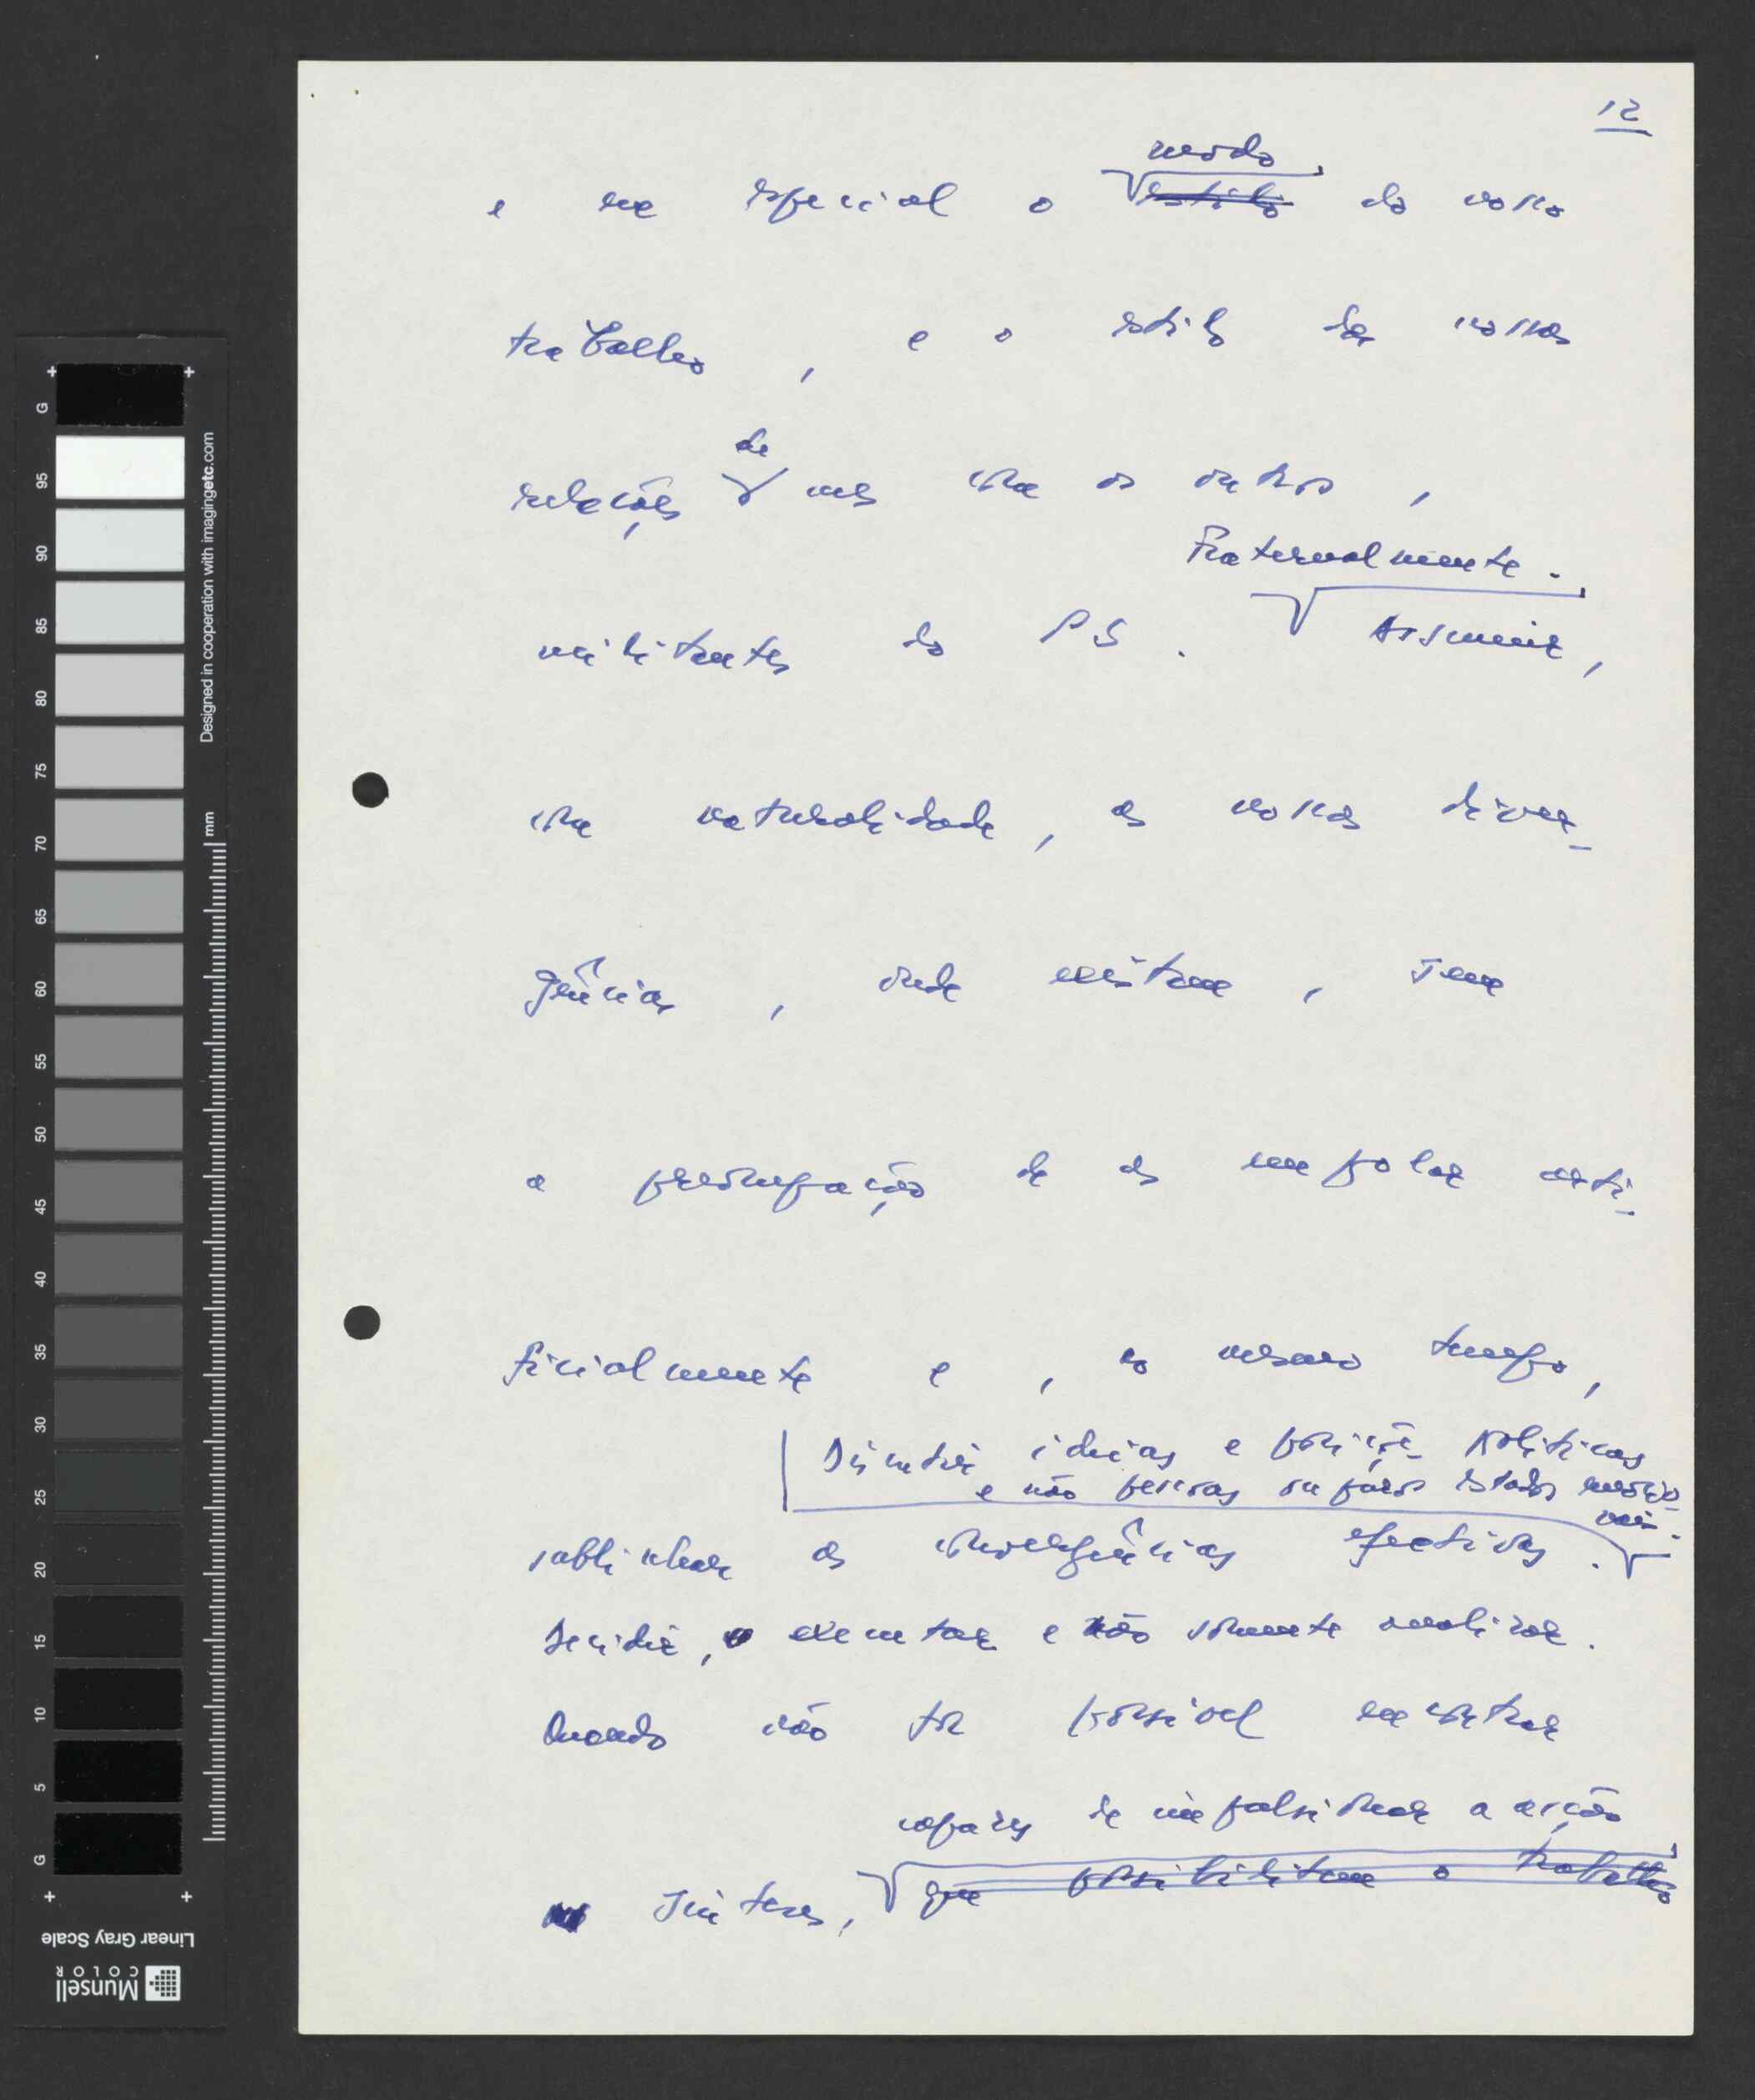 12
modo
e em especial o estilo do nosso
trabalho, e o estilo das nossas
de
relações uns com os outros,
Fraternalmente.
militantes do PS. Assumir,
com naturalidade, as nossas diver-
gências, onde existam, sem
a preocupação de as empolar arti-
ficialmente e, ao mesmo tempo,
Discutir ideias e posições políticas
e não pessoas ou puros estados emocio-
nais.
sublinhar as convergências efectivas.
Decidir, executar e não somente analisar.
Quando não for possível encontrar
capazes de impulsionar a acção
sínteses, que possibilitem o trabalho
G
95
90
85
80
75
70
65
60
55
50
45
40
35
30
25
20
15
10
5
G
Designed in cooperation with imagingetc.com
mm
Linear Gray Scale
Munsell
COLOR